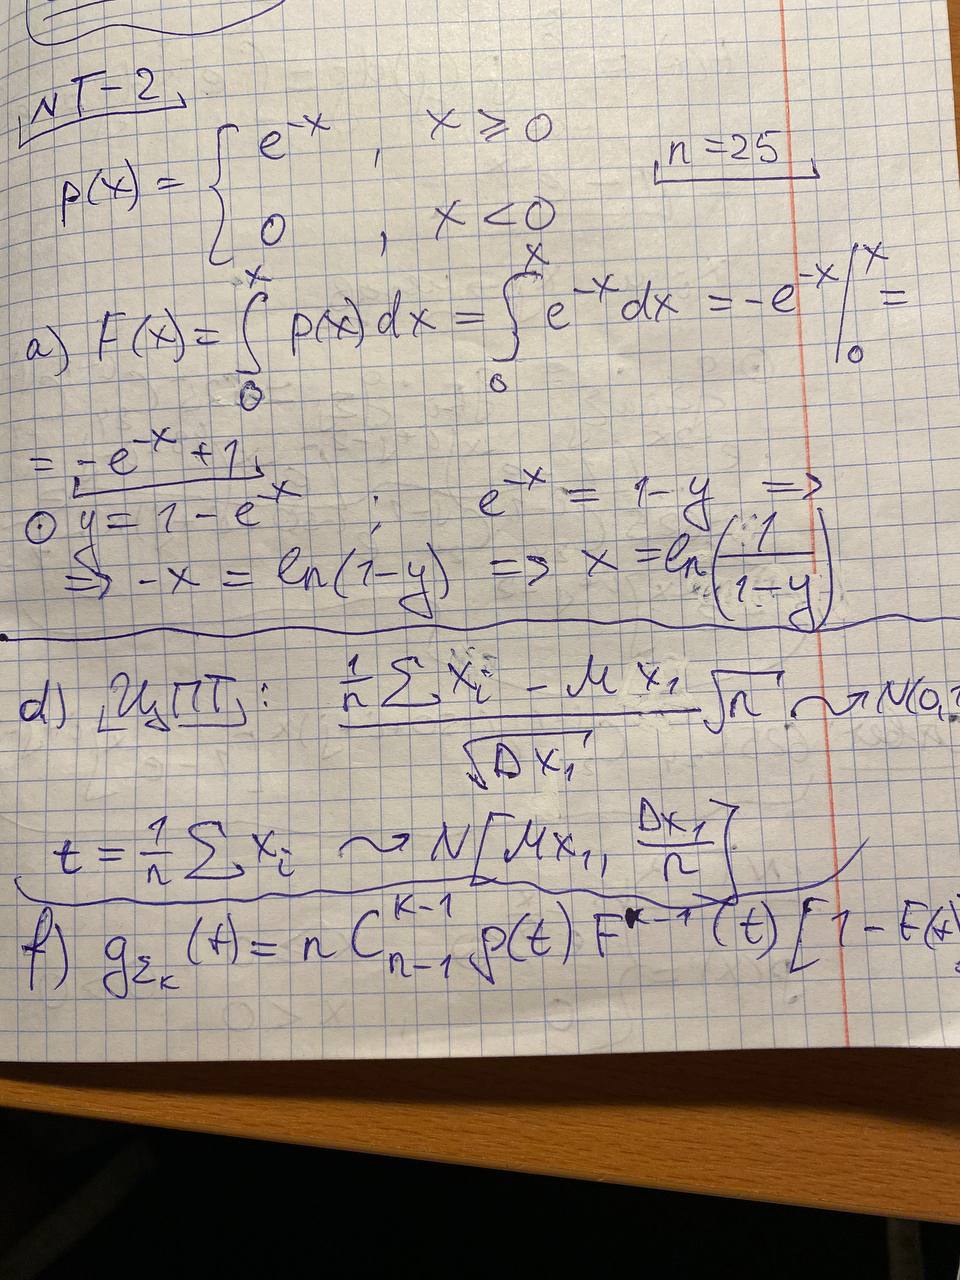 № T-2
p(x) = { e^{-x} , x ⩾ 0
0 , x < 0
n = 25
a) F(x) = ∫_0^x p(x) dx = ∫_0^x e^{-x} dx = -e^{-x} |_0^x =
= -e^{-x} + 1
⊙ y = 1 - e^{-x} ; e^{-x} = 1 - y =>
=> -x = ln(1-y) => x = ln(1/(1-y))
d) ЦПТ: (1/n Σ x_i - M x_1)/√(D x_1) √n ⇝ N(0,1
t = 1/n Σ x_i ⇝ N[Mx_1, Dx_1/n]
f) g_{z_k}(t) = n C_{n-1}^{k-1} p(t) F^{k-1}(t) [1 - F(t)